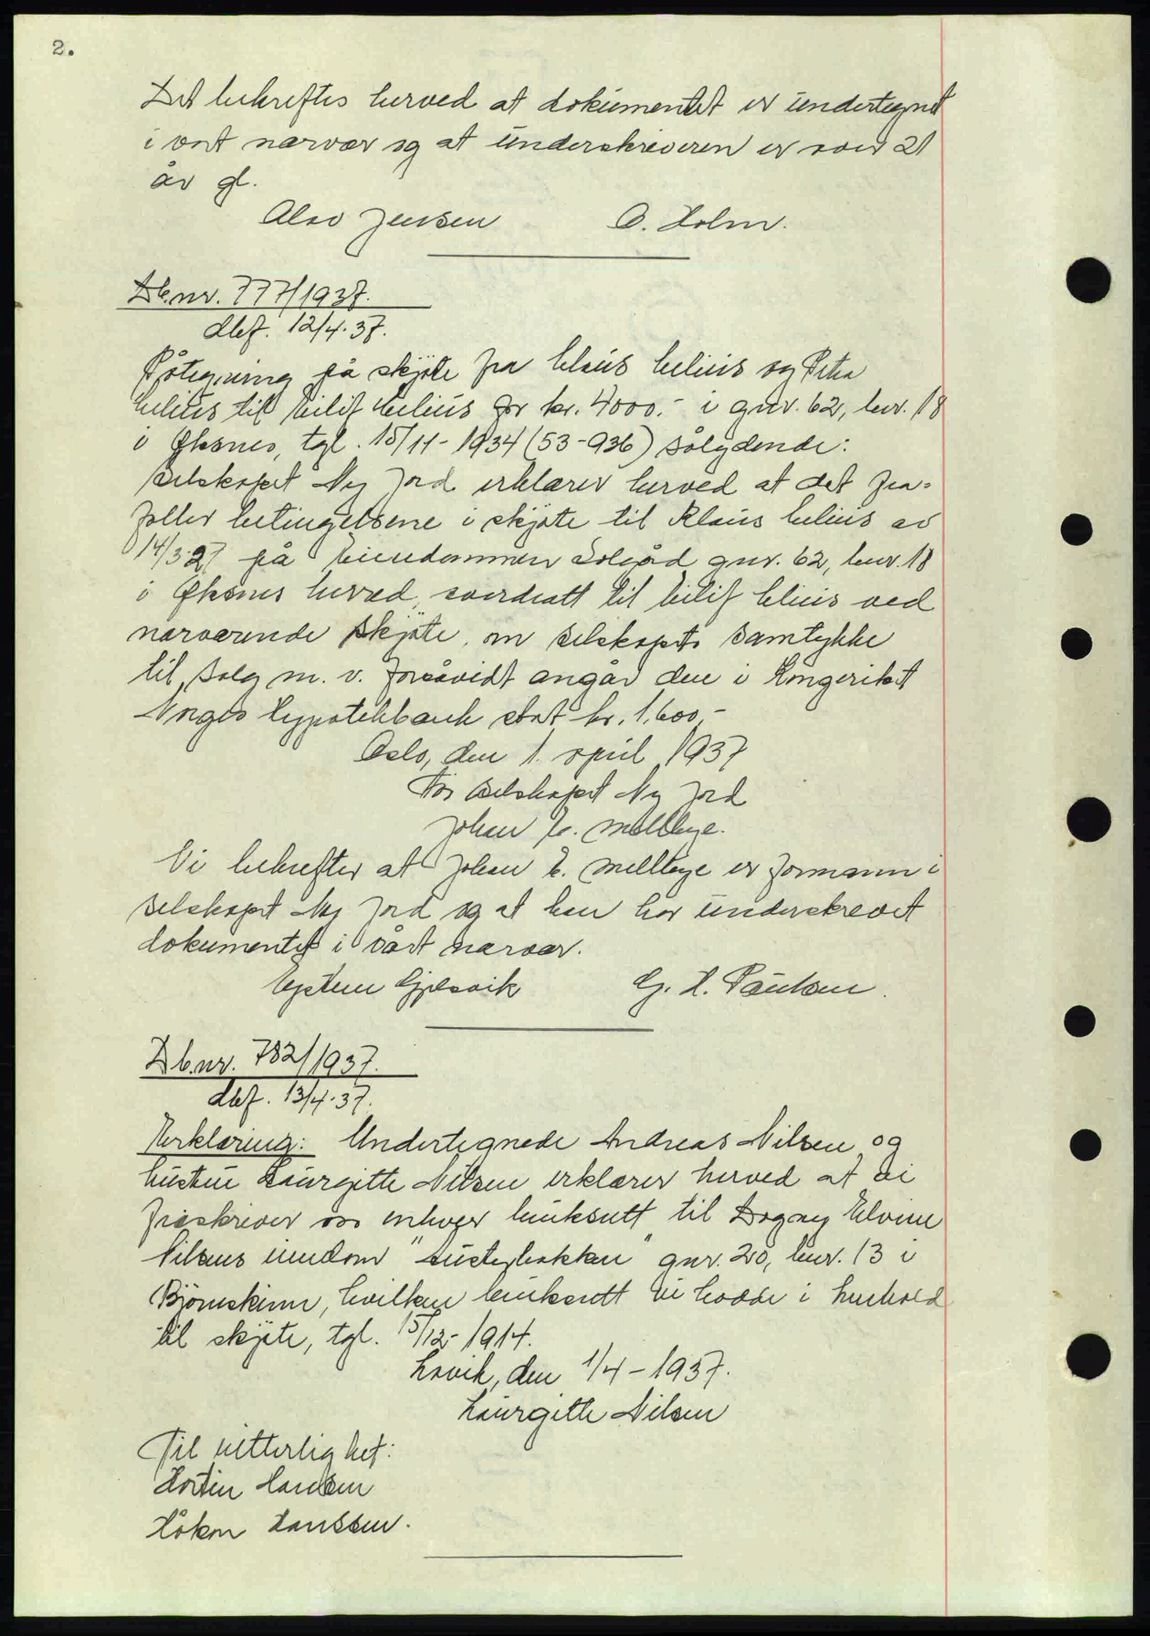 2.
Det bekreftes herved at dokumentet er undertegnet
i vort nærvær og at underskriveren er over 21
år gl.
Alav Jensen O. Holm.
Db.nr. 777/1937.
dbf. 12/4-37.
Påtegning på skjøte fra Claus Celius og Petra
Celius til Eilif Celius for kr. 4000.- i gnr. 62, bnr. 18
i Øksnes, tgl. 15/11-1934 (53-936) sålydende:
Selskapet Ny Jord erklærer herved at det fra-
faller betingelsene i skjøte til Klaus Celius av
14/3-27 på Eiendommen Solgård gnr. 62, bnr. 18
i Øksnes herred, overdratt til Eilif Celius ved
nærværende skjøte, om selskapets samtykke
til salg m. v. forsåvidt angår den i Kongeriket
Norges Hypotekbank stat kr. 1.600,-
Oslo, den 1. april 1937
For Selskapet Ny Jord
Johan E. Mellbye.
Vi bekrefter at Johan E. Mellbye er formann i
Selskapet Ny Jord og at han har underskrevet
dokumentet i vårt nærvær.
Eystein Gjelsvik G. H. Paulsen.
Db.nr. 782/1937.
dbf. 13/4-37.
Erklæring: Undertegnede Andreas Nilsen og
hustru Laurgitte Nilsen erklærer herved at vi
fraskriver oss enhver bruksrett til Dagny Elvine
Nilsens eiendom gnr. 20, bnr. 13 i
Bjørnskinn, hvilken bruksrett vi hadde i henhold
til skjøte, tgl. 15/12-1914.
Lovik, den 1/4-1937.
Laurgitte Nilsen
Til vitterlighet:
Hansen
Håkon Hanssen.